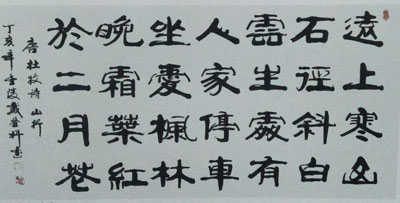 遠上寒山
石徑斜白
雲生處有
人家停車
坐愛楓林
晚霜葉紅
於二月花
唐杜牧詩山行
丁亥年